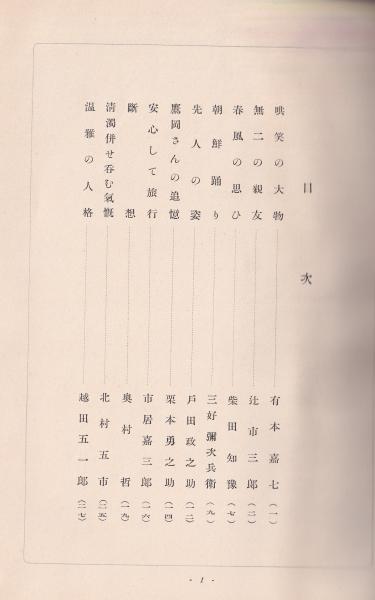 目次
哄笑の大物 有本嘉七(一)
無二の親友 辻市三郎(二)
春風の思ひ 柴田知豫(七)
朝鮮踊り 三好彌次兵衞(九)
先人の姿 戶田政之助(一二)
鷹岡さんの追憶 栗本勇之助(一四)
安心して旅行 市居嘉三郎(一六)
斷想 奥村哲(一九)
淸濁併せ呑む氣慨 北村五市(二五)
溫雅の人格 越田五一郎(二七)
- 1 -